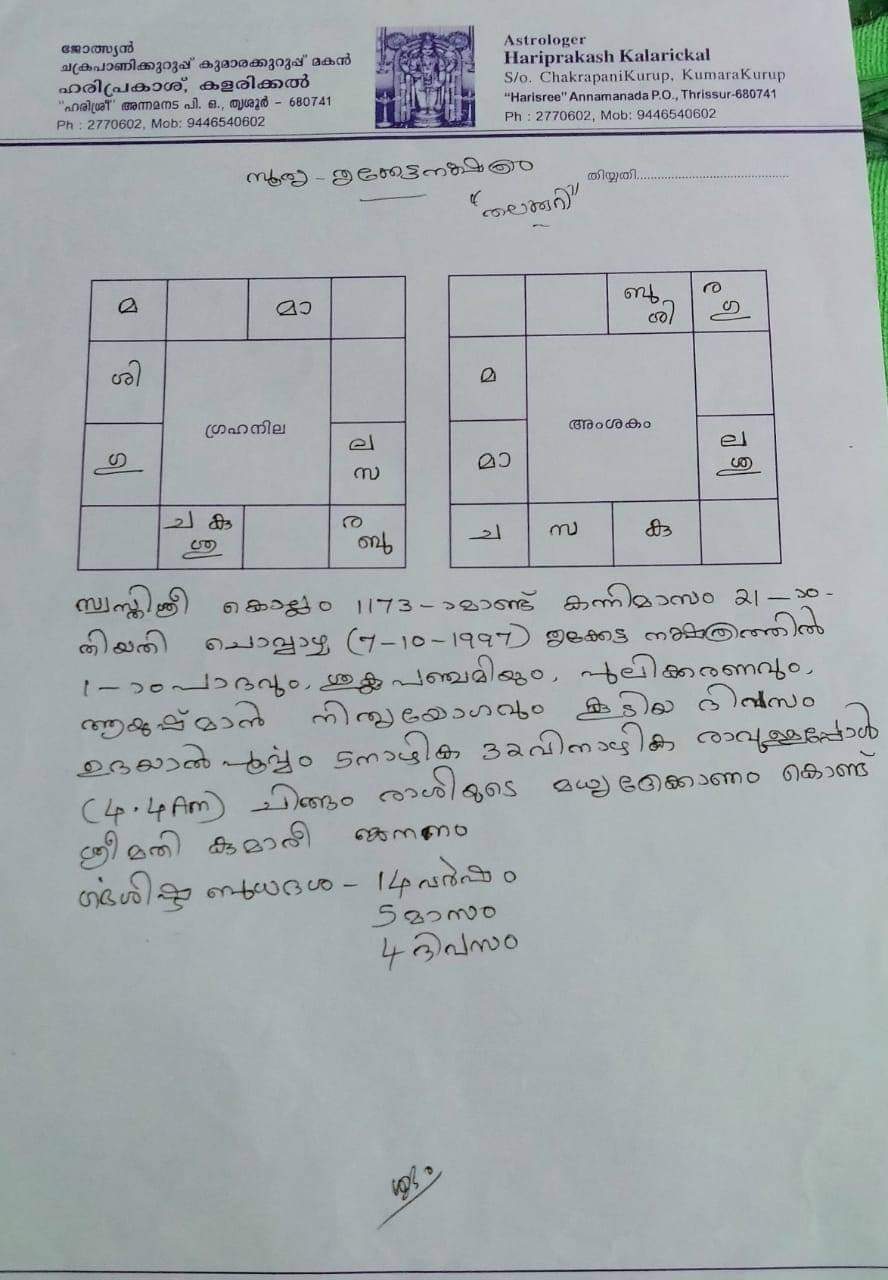 ജോത്സ്യൻ
ചക്രപാണിക്കുറുപ്പ് കുമാരക്കുറുപ്പ് മകൻ
ഹരിപ്രകാശ്, കളരിക്കൽ
"ഹരിശ്രീ" അന്നമനട പി. ഒ., തൃശൂർ - 680741
Ph : 2770602, Mob: 9446540602
Astrologer
Hariprakash Kalarickal
S/o. ChakrapaniKurup, KumaraKurup
"Harisree" Annamanada P.O., Thrissur-680741
Ph : 2770602, Mob: 9446540602
തൃക്കേട്ടനക്ഷത്രം
തിയ്യതി
"തലക്കുറി"
മ മാ
ശി
ഗ്രഹനില
ഗു
ല
സ
ച കു
ശു
ര
ബു
ബു
ശി
ര
ഗു
മ
അംശകം
മാ
ല
ശു
ച സ കു
സ്വസ്തിശ്രീ കൊല്ലം 1173-ാമാണ്ട് കന്നിമാസം 21-ാം-
തിയതി ചൊവ്വാഴ്ച (7-10-1997) തൃക്കേട്ട നക്ഷത്രത്തിൽ
1-ാം പാദവും, ശുക്ല പഞ്ചമിയും, പുലിക്കരണവും,
ആയുഷ്മാൻ നിത്യയോഗവും കൂടിയ ദിവസം
ഉദയാൽ പൂർവ്വം 5നാഴിക 32വിനാഴിക രാവുള്ളപ്പോൾ
(4.4Am) ചിങ്ങം രാശിയുടെ മധ്യദ്രേക്കാണം കൊണ്ട്
ശ്രീമതി കുമാരീ ജനനം
ഗർഭശിഷ്ട ബുധദശ - 14 വർഷം
5 മാസം
4 ദിവസം
ശുഭം